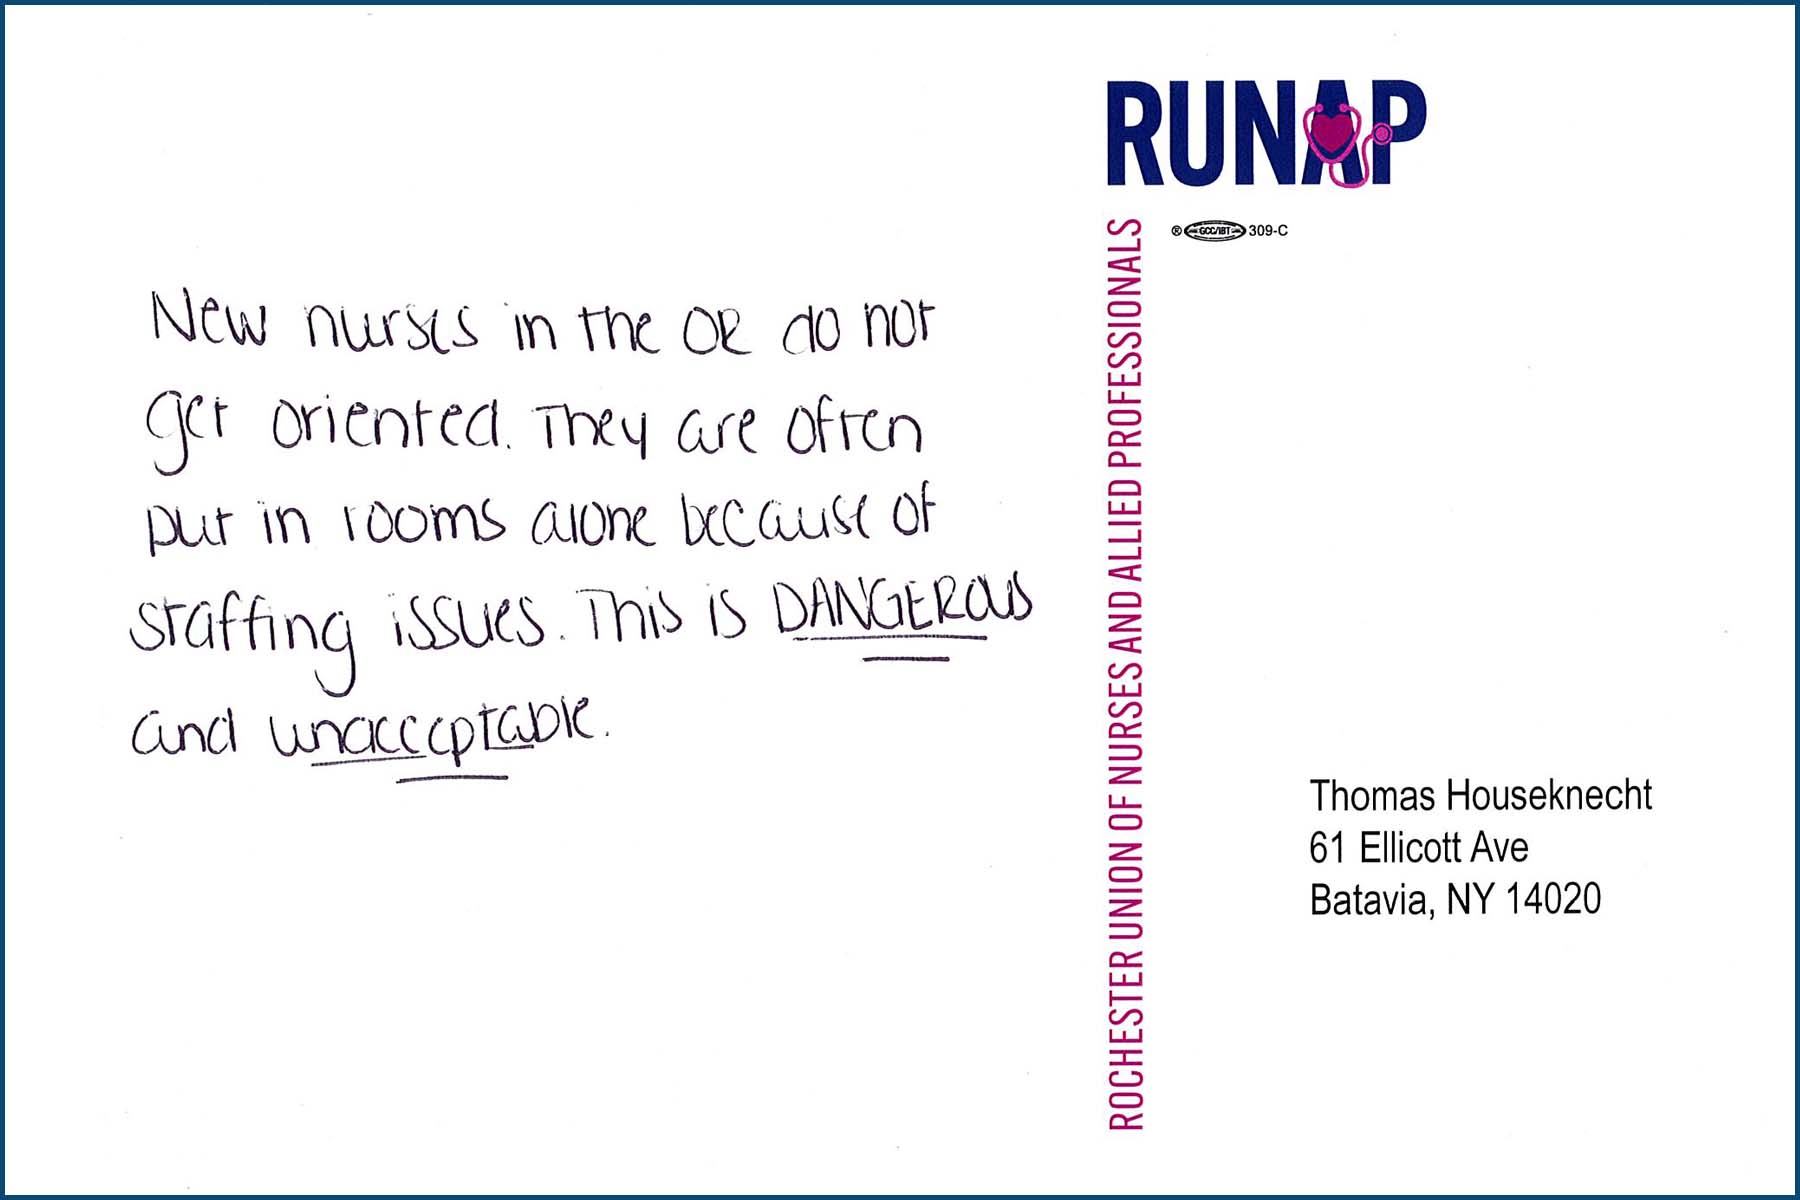 New nurses in the OR do not
get oriented. They are often
put in rooms alone because of
staffing issues. This is DANGEROUS
and unacceptable.
RUNAP
® GCC/IBT 309-C
ROCHESTER UNION OF NURSES AND ALLIED PROFESSIONALS
Thomas Houseknecht
61 Ellicott Ave
Batavia, NY 14020